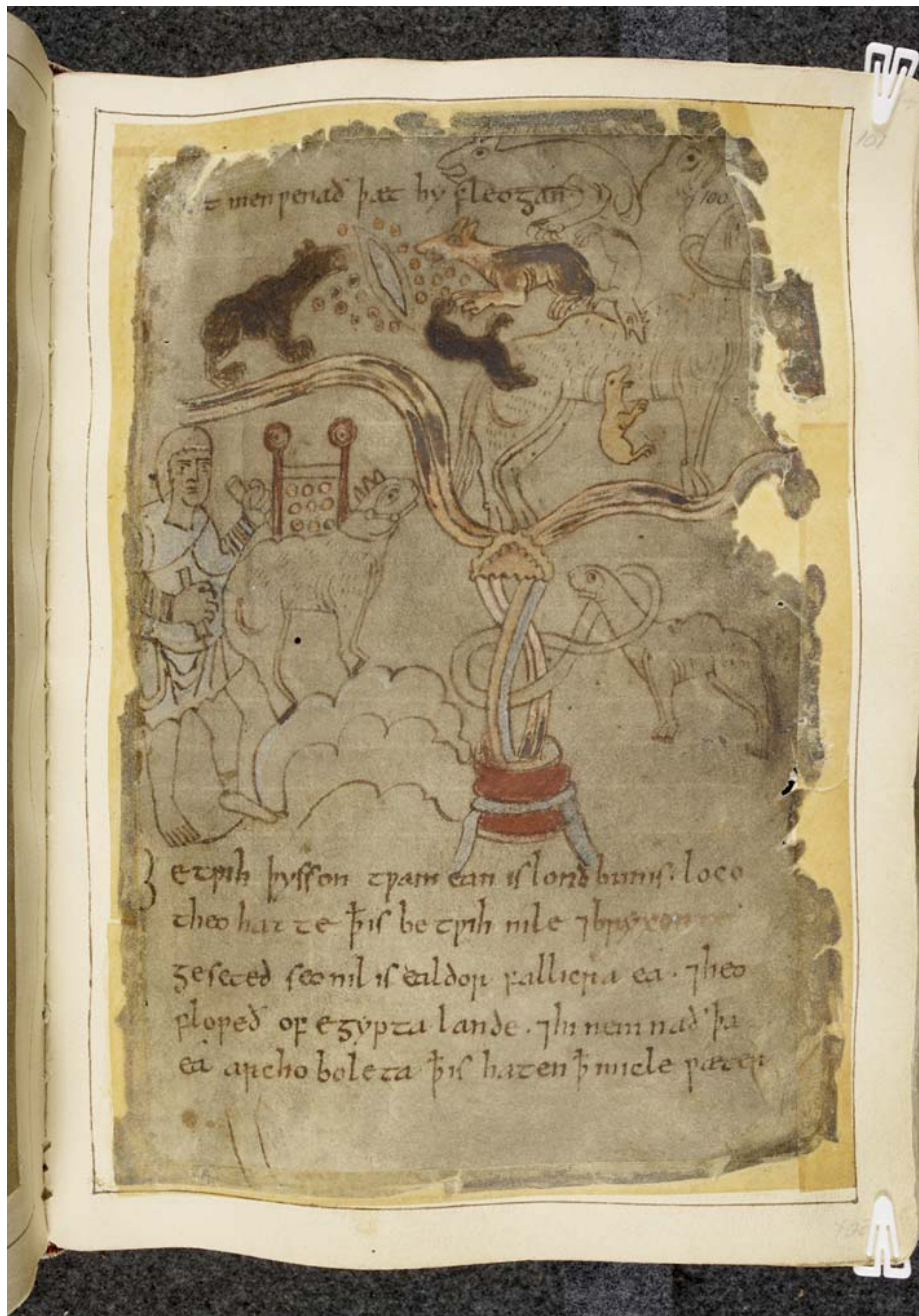 men ƿenað þæt hy fleogan
101
100
Betƿih þysson tƿam ean is londbunis · loco
theo hatte ꝥ is betƿih nile ⁊
geseted seo nil is ealdor fallicra ea · ⁊ heo
floƿeð of egypta lande · ⁊ hi nemnað þa
ea archoboleta ꝥ is haten ꝥ micle ƿæter